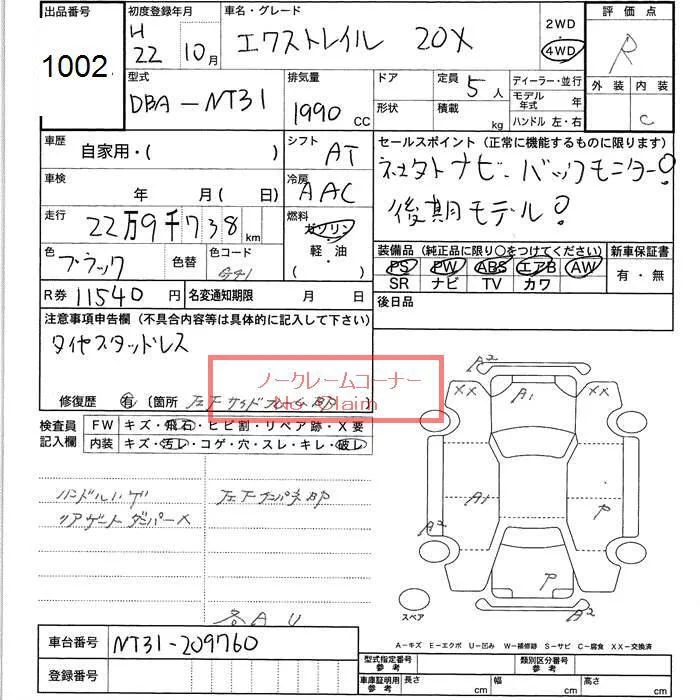 出品番号
1002
初度登録年月
H
22 10月
車名・グレード
エクストレイル 20X
2WD
4WD
評価点
R
外装 内装
C
型式
DBA-NT31
排気量
1990 CC
ドア
形状
定員 5 人
積載 kg
ディーラー・並行
モデル年式 年
ハンドル 左・右
車歴
自家用・( )
シフト
AT
セールスポイント(正常に機能するものに限ります)
ナビ・バックモニター!
後期モデル!
車検
年 月( 日)
冷房
AAC
走行
22万9千738 km
燃料
ガソリン
軽・油
( )
色
ブラック
色替
色コード
G41
装備品(純正品に限り○をつけてください)
PS PW ABS エアB AW
SR ナビ TV カワ
新車保証書
有・無
R券 11540 円
名変通知期限 月 日
後日品
注意事項申告欄(不具合内容等は具体的に記入して下さい)
タイヤスタッドレス
ノークレームコーナー
No Claim
修復歴 有 (箇所 左下サイドフレーム部)
検査員
記入欄
FW キズ・飛石・ヒビ割・リペア跡・X要
内装 キズ・汚レ・コゲ・穴・スレ・キレ・破レ
ハンドルハゲ
リアゲートダンパーX
各AU
A2
XX
A1
XX
A1
P
A2
P
A2
スペア
A-キズ E-エクボ U-凹み W-補修跡 S-サビ C-腐食 XX-交換済
車台番号
NT31-209760
登録番号
型式指定番号
参考
類別区分番号
参考
車庫証明用
参考
長さ cm
幅 cm
高さ cm